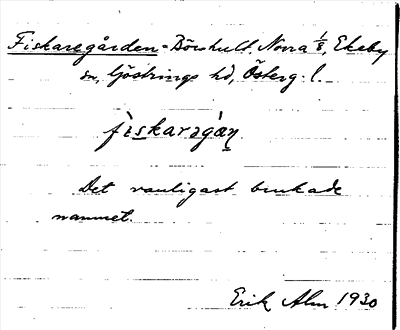 Fiskaregården = Börshult Norra 1/8, Ekeby
sn, Göstrings hd, Österg. l.
fiskaragån
Det vanligast brukade
namnet.
Erik Alm 1930